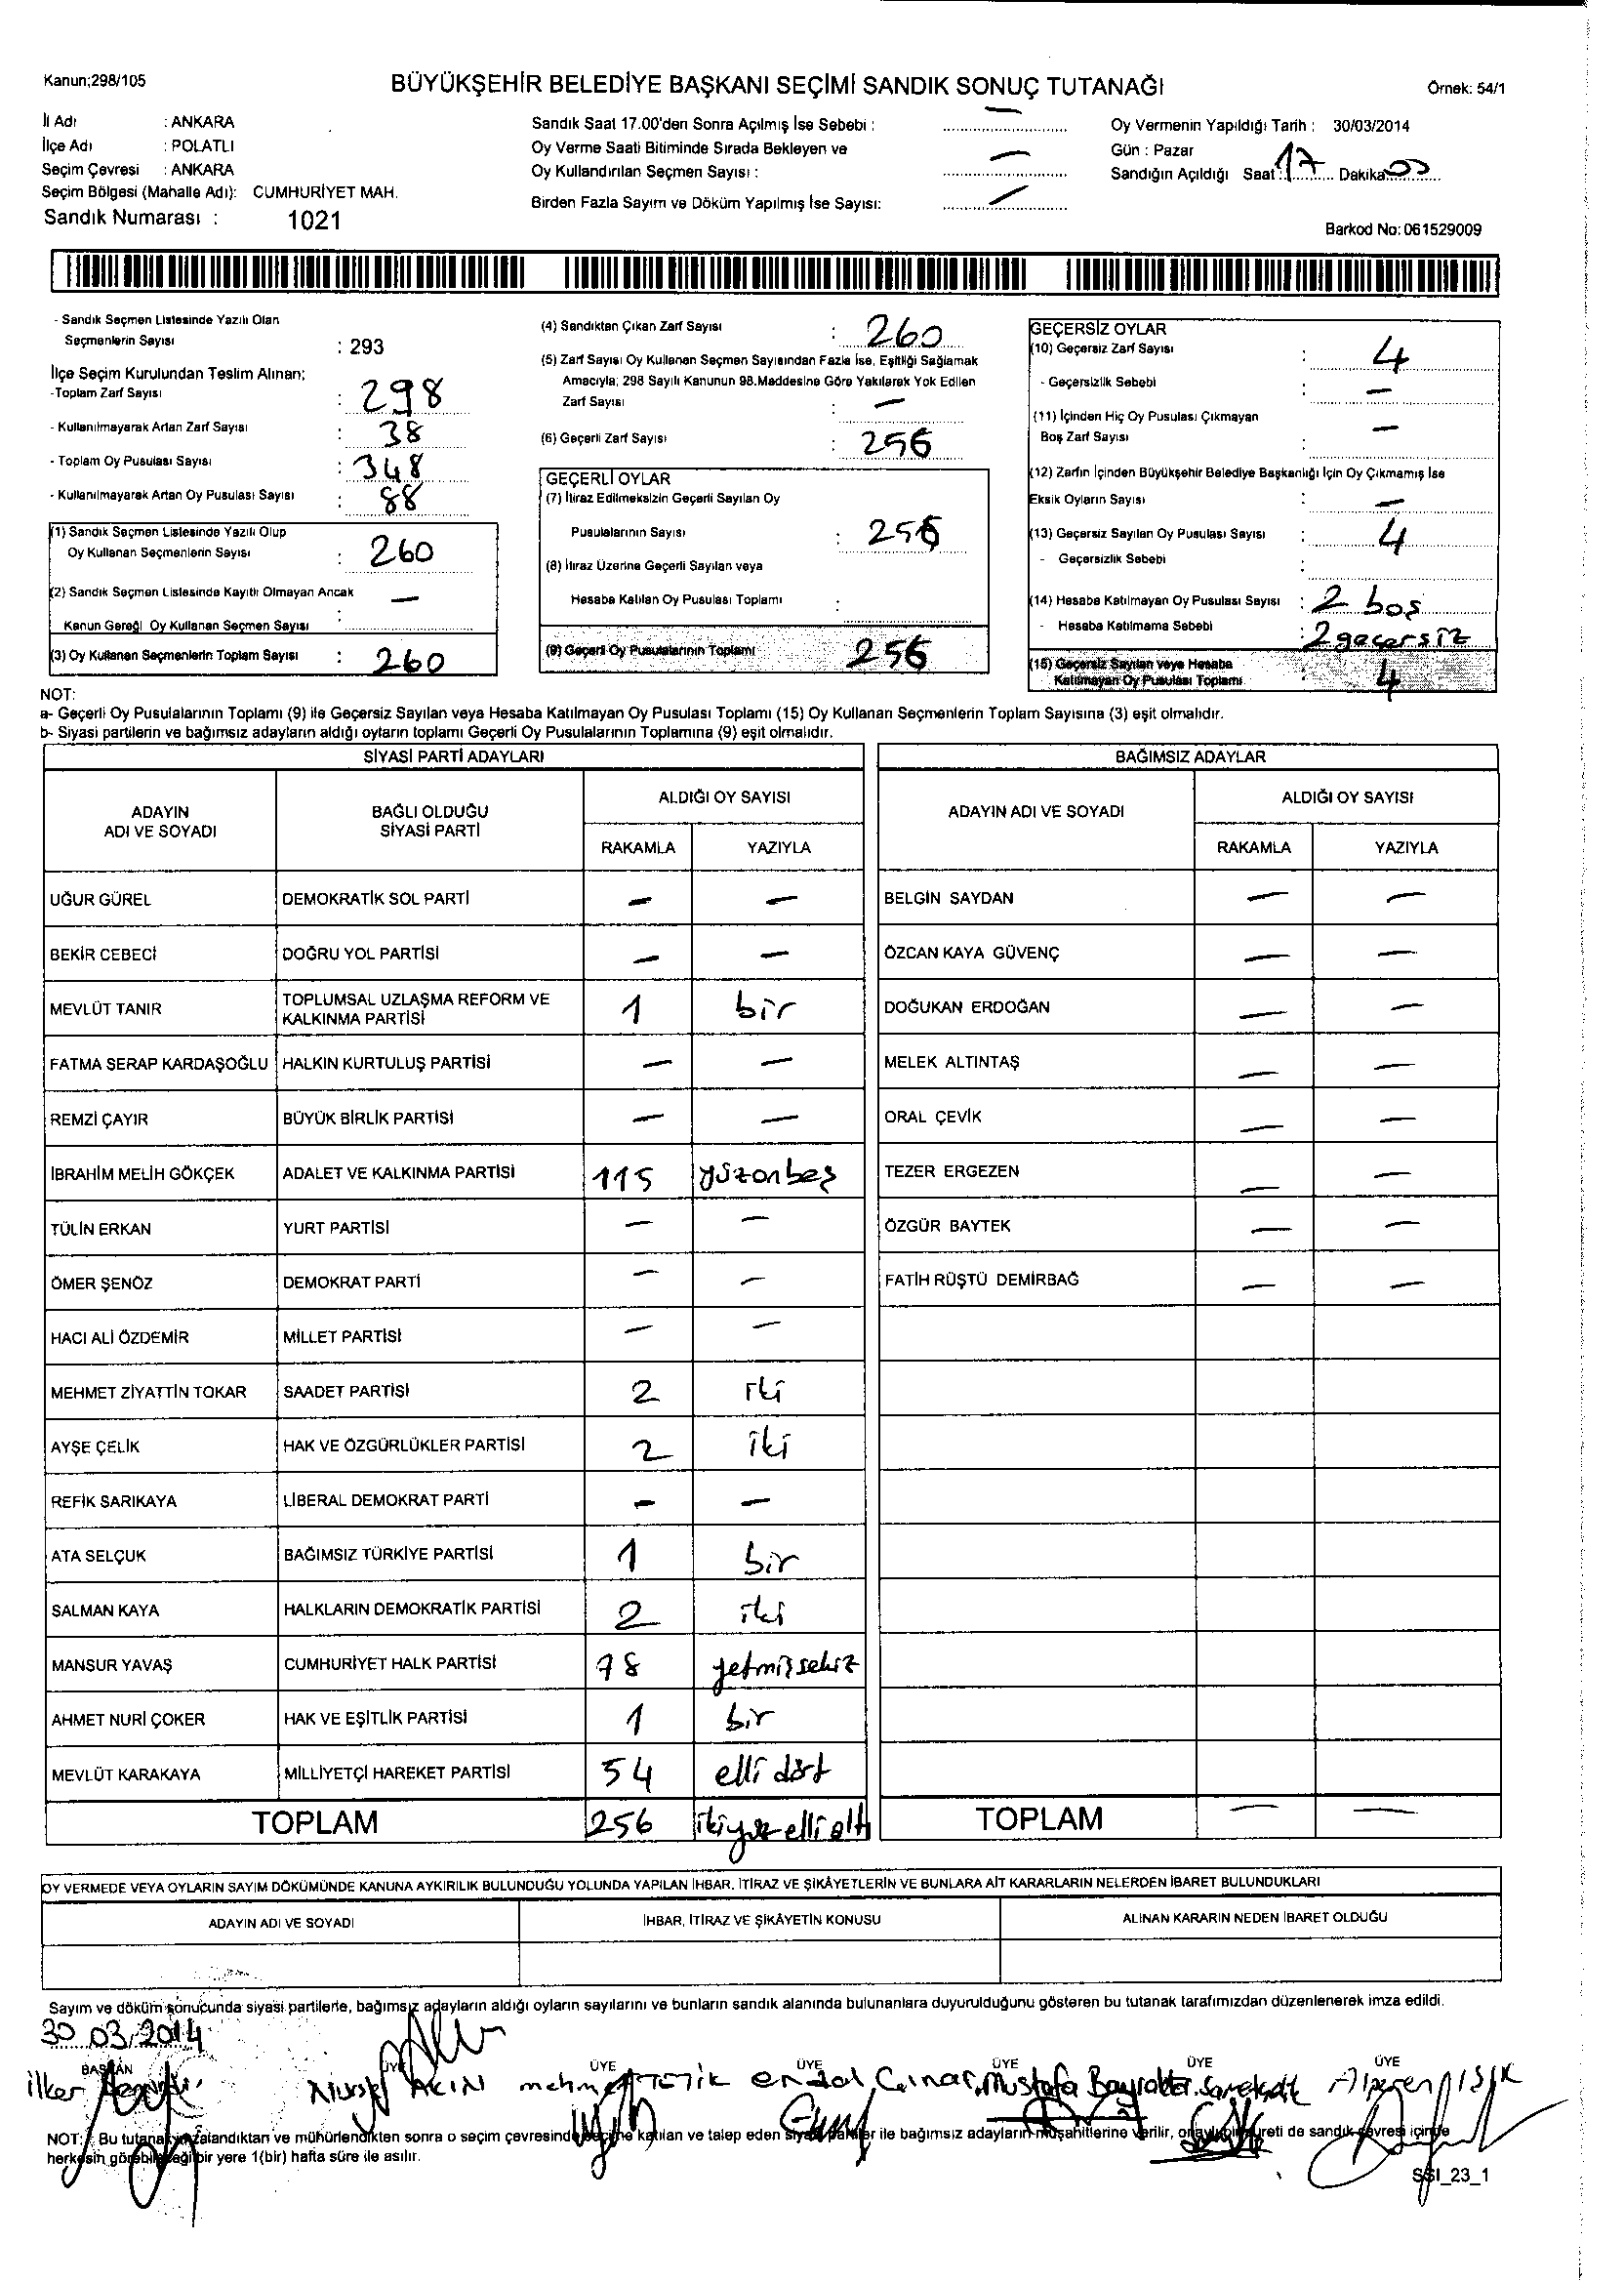 Kanun;298/105
BÜYÜKŞEHİR BELEDİYE BAŞKANI SEÇİMİ SANDIK SONUÇ TUTANAĞI
Örnek: 54/1
İl Adı : ANKARA
İlçe Adı : POLATLI
Seçim Çevresi : ANKARA
Seçim Bölgesi (Mahalle Adı): CUMHURİYET MAH.
Sandık Numarası : 1021
Sandık Saat 17.00'den Sonra Açılmış İse Sebebi : —
Oy Verme Saati Bitiminde Sırada Bekleyen ve
Oy Kullandırılan Seçmen Sayısı : —
Birden Fazla Sayım ve Döküm Yapılmış İse Sayısı: —
Oy Vermenin Yapıldığı Tarih : 30/03/2014
Gün : Pazar
Sandığın Açıldığı Saat : 17 Dakika 00
Barkod No: 061529009
- Sandık Seçmen Listesinde Yazılı Olan
Seçmenlerin Sayısı : 293
İlçe Seçim Kurulundan Teslim Alınan;
-Toplam Zarf Sayısı : 298
- Kullanılmayarak Artan Zarf Sayısı : 38
- Toplam Oy Pusulası Sayısı : 348
- Kullanılmayarak Artan Oy Pusulası Sayısı : 88
(1) Sandık Seçmen Listesinde Yazılı Olup
Oy Kullanan Seçmenlerin Sayısı : 260
(2) Sandık Seçmen Listesinde Kayıtlı Olmayan Ancak —
Kanun Gereği Oy Kullanan Seçmen Sayısı :
(3) Oy Kullanan Seçmenlerin Toplam Sayısı : 260
(4) Sandıktan Çıkan Zarf Sayısı : 260
(5) Zarf Sayısı Oy Kullanan Seçmen Sayısından Fazla İse, Eşitliği Sağlamak
Amacıyla; 298 Sayılı Kanunun 98.Maddesine Göre Yakılarak Yok Edilen
Zarf Sayısı : —
(6) Geçerli Zarf Sayısı : 256
GEÇERLİ OYLAR
(7) İtiraz Edilmeksizin Geçerli Sayılan Oy
Pusulalarının Sayısı : 256
(8) İtiraz Üzerine Geçerli Sayılan veya
Hesaba Katılan Oy Pusulası Toplamı :
(9) Geçerli Oy Pusulalarının Toplamı 256
GEÇERSİZ OYLAR
(10) Geçersiz Zarf Sayısı : 4
- Geçersizlik Sebebi : —
(11) İçinden Hiç Oy Pusulası Çıkmayan
Boş Zarf Sayısı : —
(12) Zarfın İçinden Büyükşehir Belediye Başkanlığı İçin Oy Çıkmamış İse
Eksik Oyların Sayısı : —
(13) Geçersiz Sayılan Oy Pusulası Sayısı : 4
- Geçersizlik Sebebi :
(14) Hesaba Katılmayan Oy Pusulası Sayısı : 2 boş
- Hesaba Katılmama Sebebi : 2 geçersiz
(15) Geçersiz Sayılan veya Hesaba
Katılmayan Oy Pusulası Toplamı : 4
NOT:
a- Geçerli Oy Pusulalarının Toplamı (9) ile Geçersiz Sayılan veya Hesaba Katılmayan Oy Pusulası Toplamı (15) Oy Kullanan Seçmenlerin Toplam Sayısına (3) eşit olmalıdır.
b- Siyasi partilerin ve bağımsız adayların aldığı oyların toplamı Geçerli Oy Pusulalarının Toplamına (9) eşit olmalıdır.
SİYASİ PARTİ ADAYLARI
ADAYIN
ADI VE SOYADI
BAĞLI OLDUĞU
SİYASİ PARTİ
ALDIĞI OY SAYISI
RAKAMLA YAZIYLA
UĞUR GÜREL DEMOKRATİK SOL PARTİ — —
BEKİR CEBECİ DOĞRU YOL PARTİSİ — —
MEVLÜT TANIR TOPLUMSAL UZLAŞMA REFORM VE
KALKINMA PARTİSİ 1 bir
FATMA SERAP KARDAŞOĞLU HALKIN KURTULUŞ PARTİSİ — —
REMZİ ÇAYIR BÜYÜK BİRLİK PARTİSİ — —
İBRAHİM MELİH GÖKÇEK ADALET VE KALKINMA PARTİSİ 115 yüzonbeş
TÜLİN ERKAN YURT PARTİSİ — —
ÖMER ŞENÖZ DEMOKRAT PARTİ — —
HACI ALİ ÖZDEMİR MİLLET PARTİSİ — —
MEHMET ZİYATTİN TOKAR SAADET PARTİSİ 2 iki
AYŞE ÇELİK HAK VE ÖZGÜRLÜKLER PARTİSİ 2 iki
REFİK SARIKAYA LİBERAL DEMOKRAT PARTİ — —
ATA SELÇUK BAĞIMSIZ TÜRKİYE PARTİSİ 1 bir
SALMAN KAYA HALKLARIN DEMOKRATİK PARTİSİ 2 iki
MANSUR YAVAŞ CUMHURİYET HALK PARTİSİ 78 yetmişsekiz
AHMET NURİ ÇOKER HAK VE EŞİTLİK PARTİSİ 1 bir
MEVLÜT KARAKAYA MİLLİYETÇİ HAREKET PARTİSİ 54 elli dört
TOPLAM 256 ikiyüzellialtı
BAĞIMSIZ ADAYLAR
ADAYIN ADI VE SOYADI
ALDIĞI OY SAYISI
RAKAMLA YAZIYLA
BELGİN SAYDAN — —
ÖZCAN KAYA GÜVENÇ — —
DOĞUKAN ERDOĞAN — —
MELEK ALTINTAŞ — —
ORAL ÇEVİK — —
TEZER ERGEZEN — —
ÖZGÜR BAYTEK — —
FATİH RÜŞTÜ DEMİRBAĞ — —
TOPLAM — —
OY VERMEDE VEYA OYLARIN SAYIM DÖKÜMÜNDE KANUNA AYKIRILIK BULUNDUĞU YOLUNDA YAPILAN İHBAR, İTİRAZ VE ŞİKÂYETLERİN VE BUNLARA AİT KARARLARIN NELERDEN İBARET BULUNDUKLARI
ADAYIN ADI VE SOYADI İHBAR, İTİRAZ VE ŞİKÂYETİN KONUSU ALINAN KARARIN NEDEN İBARET OLDUĞU
Sayım ve döküm sonucunda siyasi partilerle, bağımsız adayların aldığı oyların sayılarını ve bunların sandık alanında bulunanlara duyurulduğunu gösteren bu tutanak tarafımızdan düzenlenerek imza edildi.
30.03.2014
BAŞKAN ÜYE ÜYE ÜYE ÜYE ÜYE ÜYE
İlker AKIN Mustafa Alperen IŞIK
NOT: Bu tutanak imzalandıktan ve mühürlendikten sonra o seçim çevresinde seçime katılan ve talep eden siyasi partiler ile bağımsız adayların müşahitlerine verilir, onaylı bir sureti de sandık çevresi içinde
herkesin görebileceği bir yere 1(bir) hafta süre ile asılır.
SSI_23_1